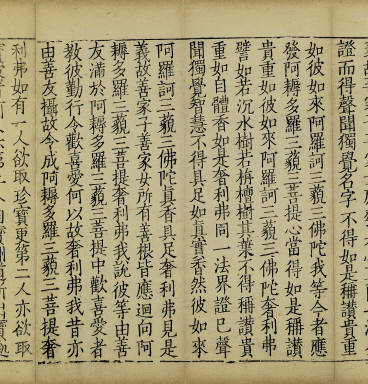 證而得聲聞獨覺名字不得如是稱讚貴重
如彼如來阿羅訶三藐三佛陀我等今者應
發阿耨多羅三藐三菩提心當得如是稱讚
貴重如彼如來阿羅訶三藐三佛陀奢利弗
譬如若沉水樹若栴檀樹其葉不得稱讚貴
重如自體香如是奢利弗同一法界證已聲
聞獨覺智慧不得具足如真實香然彼如來
阿羅訶三藐三佛陀真香具足奢利弗見是
義故善家子善家女所有善根皆應迴向阿
耨多羅三藐三菩提奢利弗我說彼等由善
友滿於阿耨多羅三藐三菩提中歡喜愛者
教彼勤行令歡喜愛何以故奢利弗我昔亦
由善友攝故今成阿耨多羅三藐三菩提奢
利弗如有一人欲取珍寶更第二人亦欲取